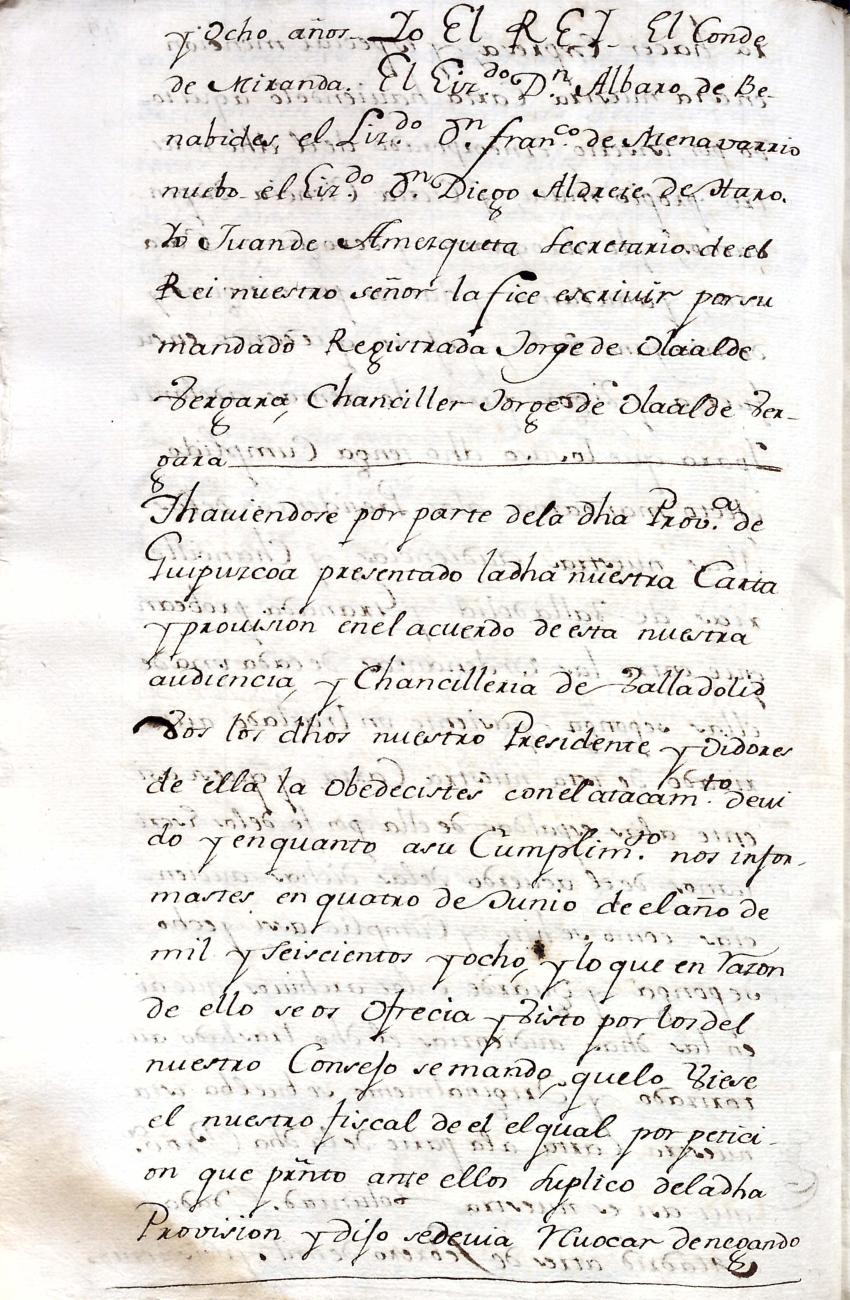 y Ocho años Yo El REI El Conde
de Miranda. El Liz.do D.n Albaro de Be-
nabides, el Liz.do D.n fran.co de Menavarrio
nuebo el Liz.do D.n Diego Aldrete de Haro.
Yo Juan de Amezqueta Secretario de el
Rei nuestro señor la fice escrivir por su
mandado Registrada Jorge de Olaalde
Vergara, Chanciller Jorge de Olaalde Ver-
gara
Thaviendose por parte dela dha Prov.a de
Guipuzcoa presentado ladha nuestra Carta
y provision enel acuerdo de esta nuestra
audiencia, y Chancilleria de Valladolid
Vos los dhos nuestro Presidente y Oidores
de ella la Obedecistes conel atacam.to devi
do y enquanto asu Cumplim.to nos infor-
mastes en quatro de Junio de el año de
mil y Seiscientos y ocho, y lo que en razon
de ello se os Ofrecia y Visto por los del
nuestro Consejo se mando quelo Viese
el nuestro fiscal de el el qual por petici-
on que prñto ante ellos Suplico deladha
Provision y dijo sedevia Revocar denegando